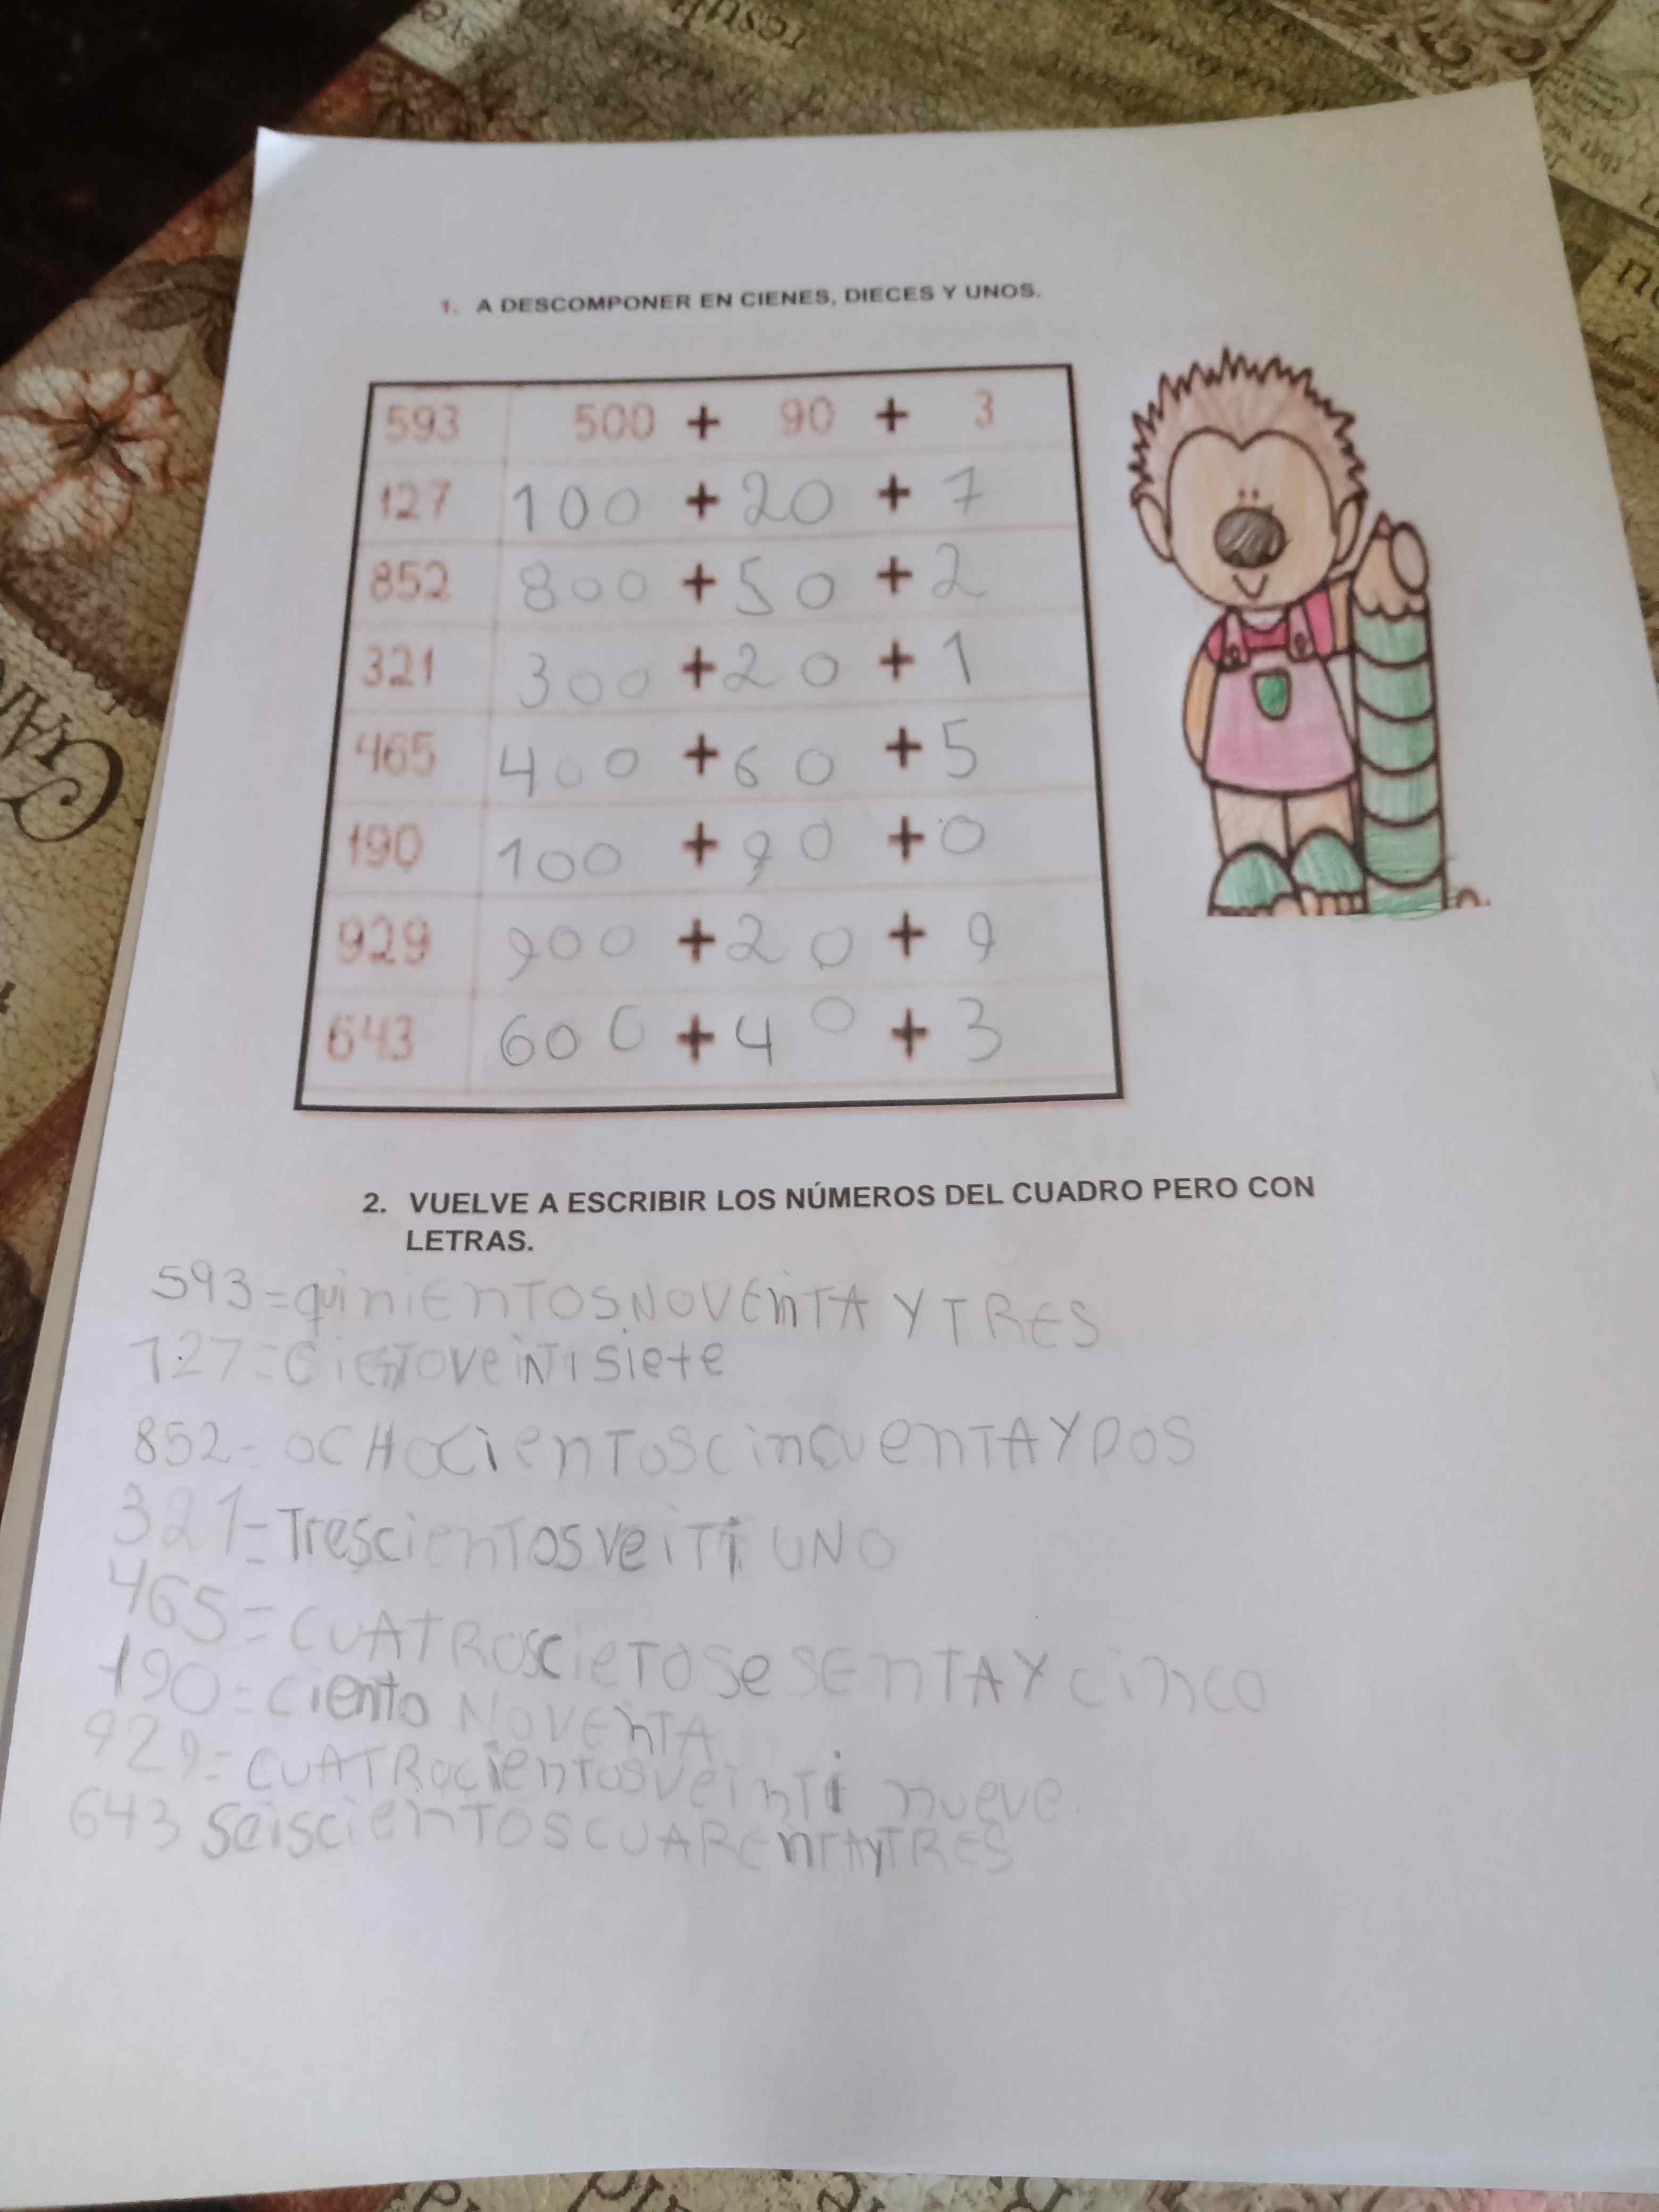 1. A DESCOMPONER EN CIENES, DIECES Y UNOS.
593 500 + 90 + 3
127 100 + 20 + 7
852 800 + 50 + 2
321 300 + 20 + 1
465 400 + 60 + 5
190 100 + 90 + 0
929 900 + 20 + 9
643 600 + 40 + 3
2. VUELVE A ESCRIBIR LOS NÚMEROS DEL CUADRO PERO CON
LETRAS.
593=quiniENTOS NOVENTA Y TRES
127=CienTOVeiNTisiete
852- OCHOCienTOSCincuenTAYDOS
321=TrescienTOSVeiTi UNO
465=CUATROSCieTOSeSENTAYcinco
190=ciento NOVENTA
929=CUATROcienTOSVeinTi nueve
643 SeiscienTOSCUARENTAyTRES